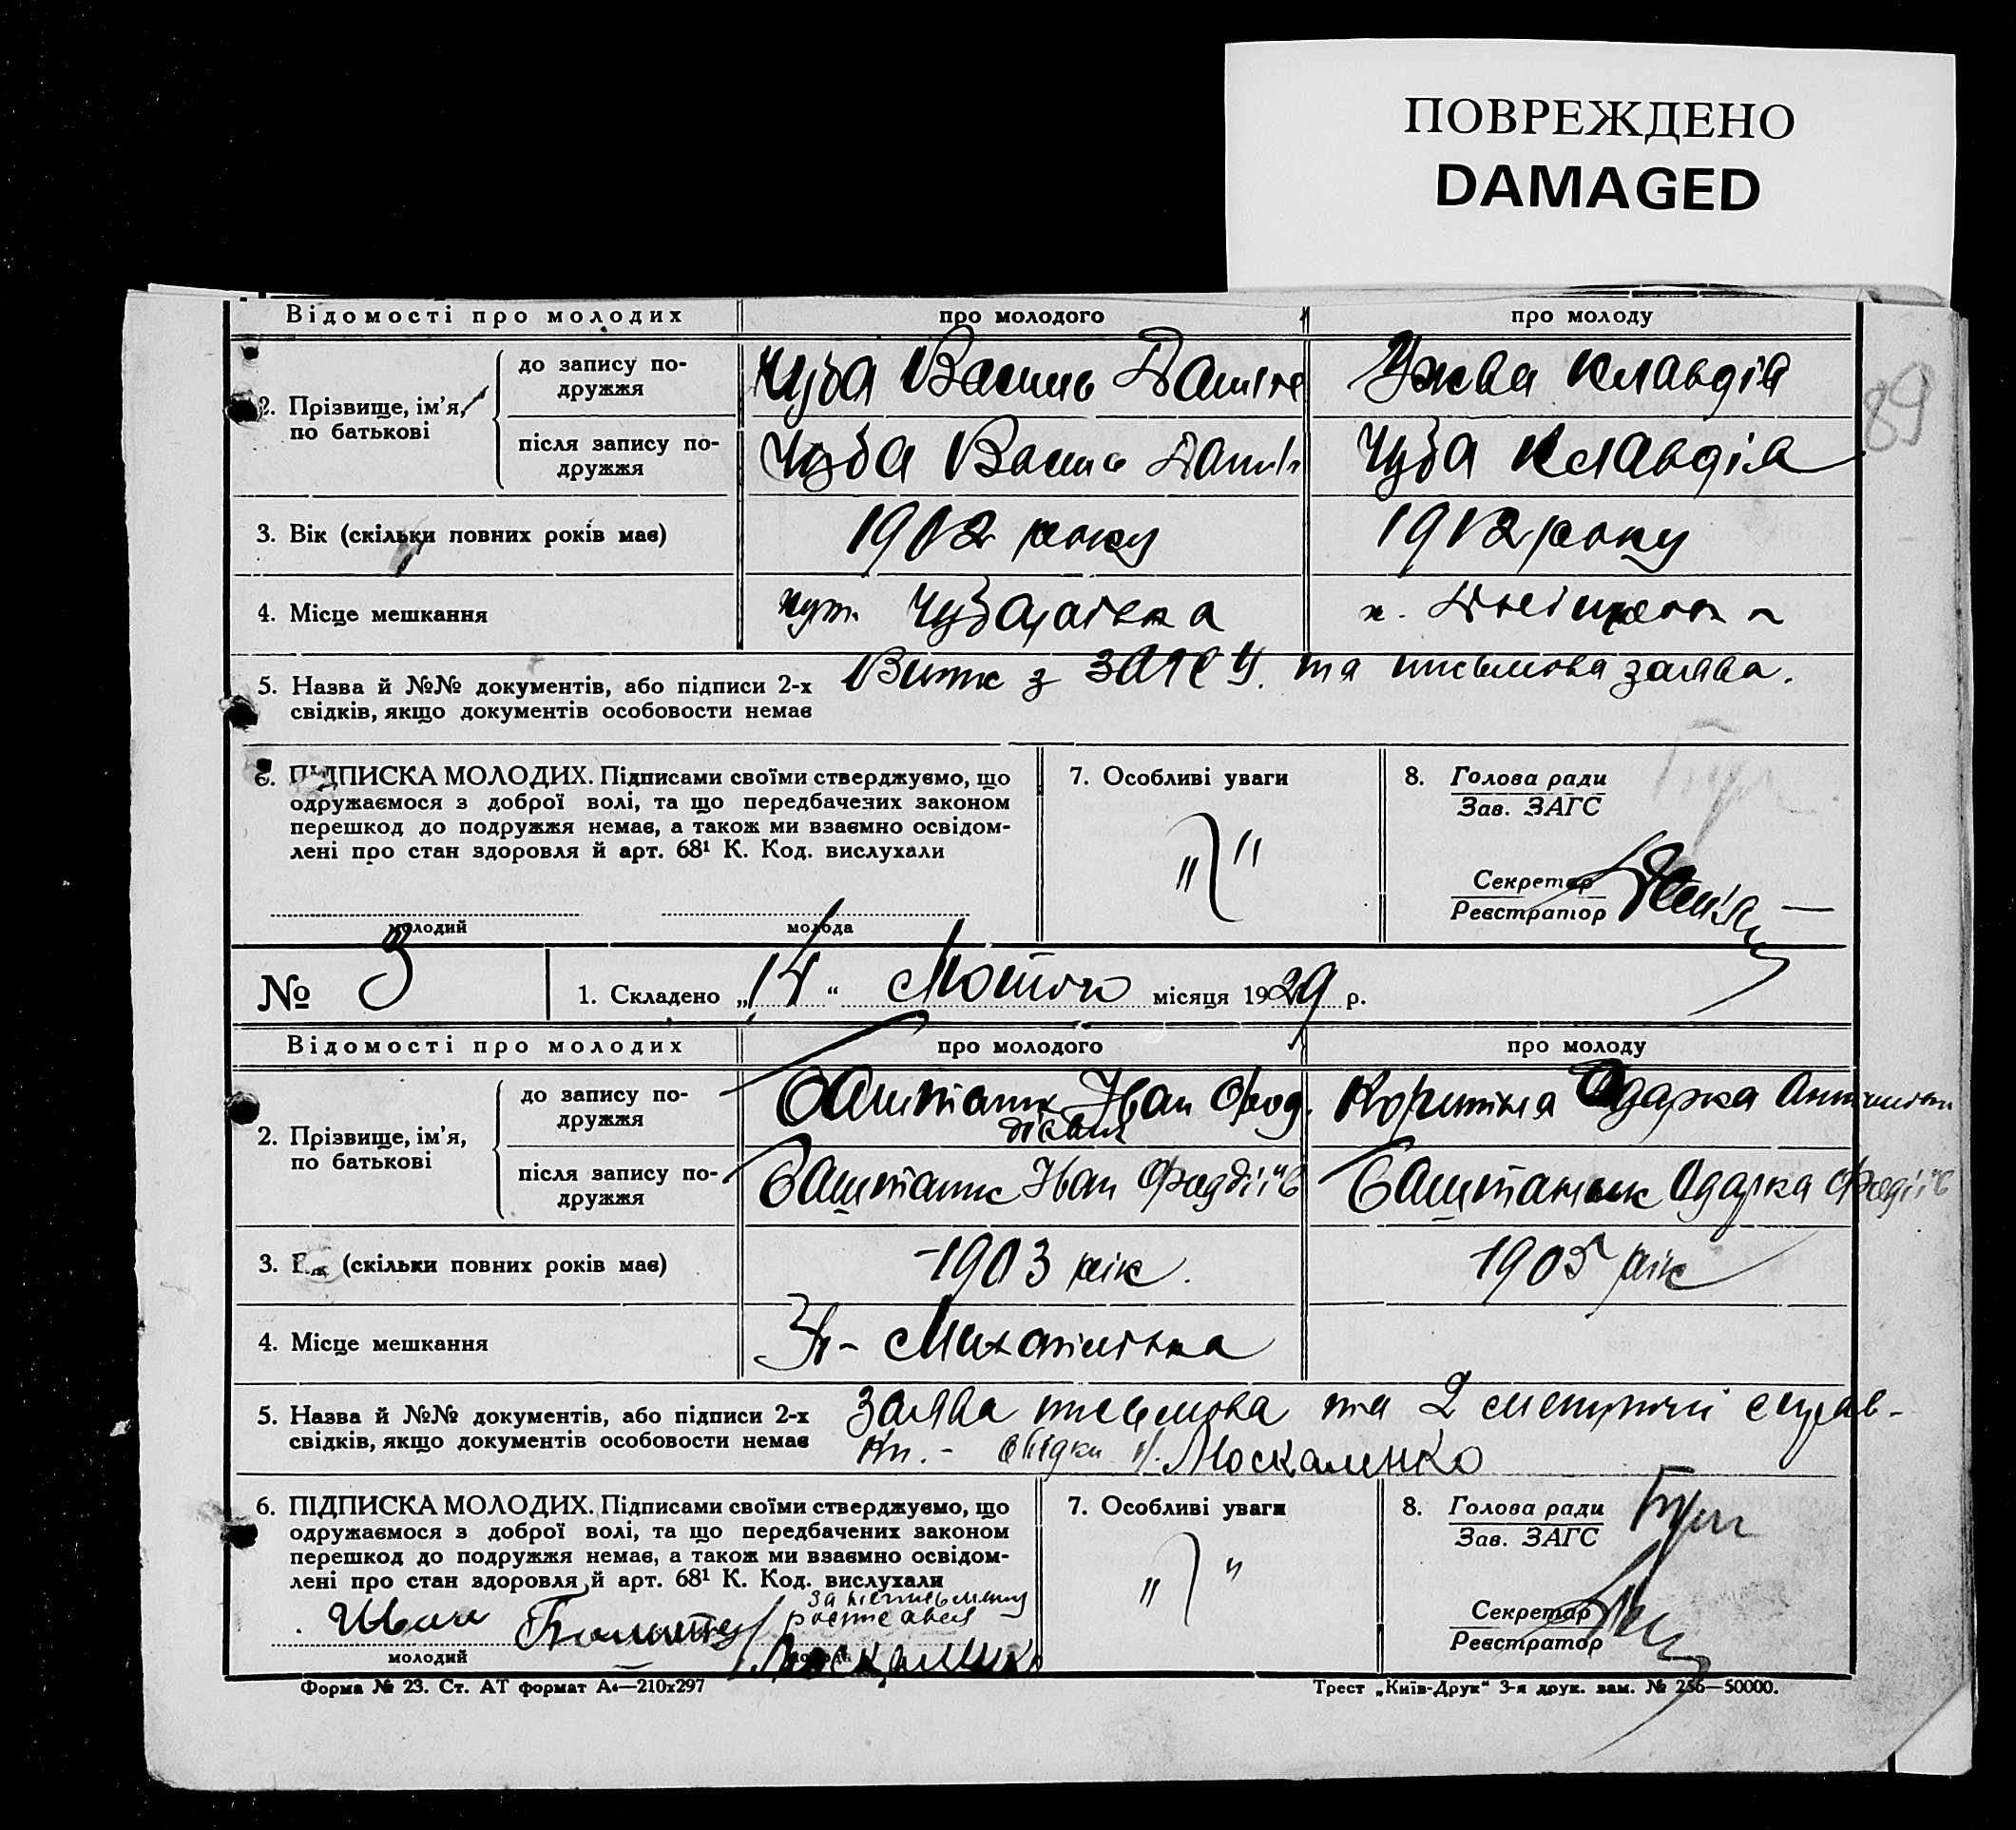 ПОВРЕЖДЕНО
DAMAGED
89
Відомості про молодих
про молодого
про молоду
2. Прізвище, ім'я,
по батькові
до запису по-
дружжя
Чуба Василь
Ужва Клавдія
після запису по-
дружжя
Чуба Василь
Чуба Клавдія
3. Вік (скільки повних років має)
року
1912 року
4. Місце мешкання
хут.
х.
5. Назва й №№ документів, або підписи 2-х
свідків, якщо документів особовости немає
Витяг з ЗАГСУ. та письмова заява.
6. ПІДПИСКА МОЛОДИХ. Підписами своїми стверджуємо, що
одружаємося з доброї волі, та що передбачених законом
перешкод до подружжя немає, а також ми взаємно освідом-
лені про стан здоровля й арт. 68¹ К. Код. вислухали
молодий
молода
7. Особливі уваги
8. Голова ради
Зав. ЗАГС
Секретар
Реєстратор
№ 3
1. Складено „14“ Лютого місяця 1929 р.
Відомості про молодих
про молодого
про молоду
2. Прізвище, ім'я,
по батькові
до запису по-
дружжя
Баштанник Іван
Одарка
після запису по-
дружжя
Баштанник Іван
Баштанник Одарка
3. Вік (скільки повних років має)
1903 рік.
1905 рік
4. Місце мешкання
Михайлівка
5. Назва й №№ документів, або підписи 2-х
свідків, якщо документів особовости немає
Заява письмова та 2 справ-
ки. - свідки Москаленко
6. ПІДПИСКА МОЛОДИХ. Підписами своїми стверджуємо, що
одружаємося з доброї волі, та що передбачених законом
перешкод до подружжя немає, а також ми взаємно освідом-
лені про стан здоровля й арт. 68¹ К. Код. вислухали
Иван
за
Москаленко
молодий
молода
7. Особливі уваги
8. Голова ради
Зав. ЗАГС
Секретар
Реєстратор
Форма № 23. Ст. АТ формат А₄—210x297
Трест „Київ-Друк“ 3-я друк. зам. № 256—50000.